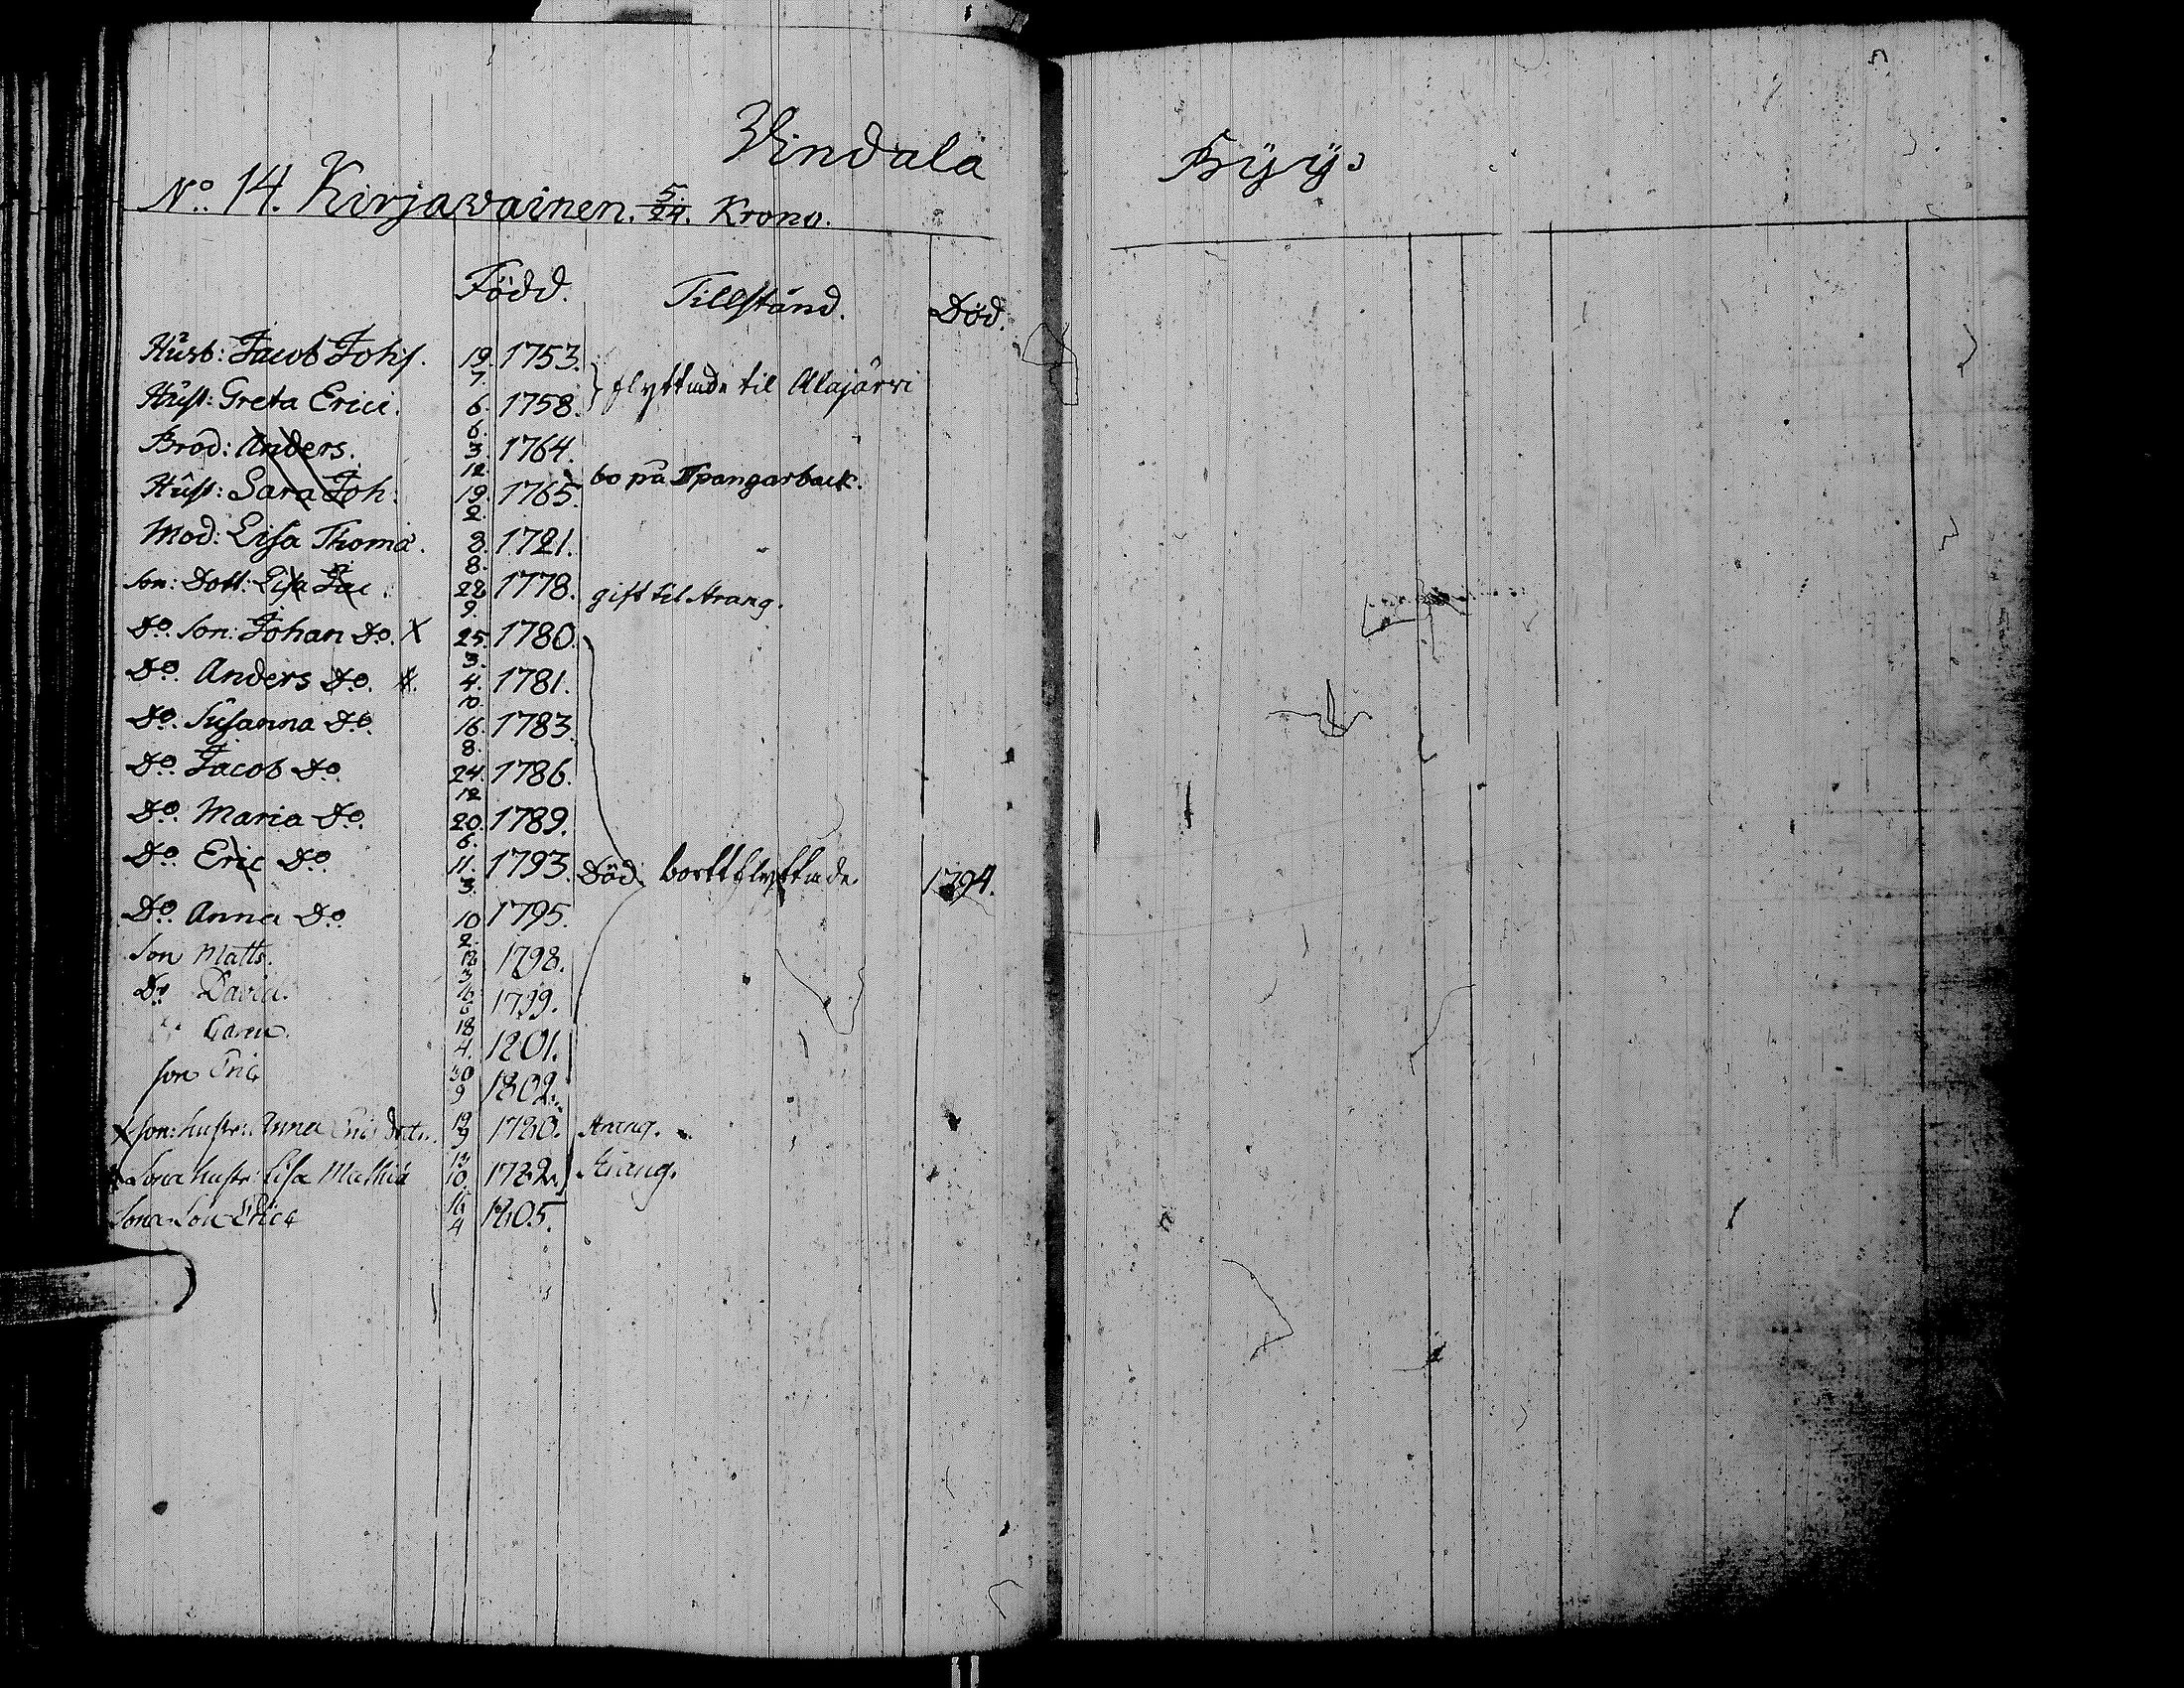 Windala Byy:
No: 14. Kirjawainen. 5/24. Krono.
Född. Tillstånd. Död.
Husb: Jacob Johs. 19/7. 1753. flyttade til Alajärvi
Hust: Greta Erici. 6/6. 1758.
Brod: Anders. 3/12 1764.
Hust: Sara Joh: 19/2. 1765. bo på Spangarback.
Mod: Lisa Thoma. 8/8. 1721.
Son: Dott: Lisa Jac. 22/9. 1778. gift til Arang.
Do. Son: Johan Do. X 25/3. 1780.
Do. Anders Do. #. 4/10 1781.
Do. Susanna Do. 16/8. 1783.
Do. Jacob Do. 24/12 1786.
Do. Maria Do. 20/6. 1789.
Do. Eric Do. 11/3. 1793. Död. bortflyttade 1794.
Do. Anna Do. 10/2. 1795.
Son Matts. 12/3 1798.
Do David. 16/6 1799.
Caren. 18/4. 1801.
son Eric 30/9 1802.
X Son: hustr: Anna Erics dott. 19/9 1780. Arang.
Sona hustr: Lisa Mathia 13/10. 1782. Arang.
Sona Son Eric 16/4 1805.